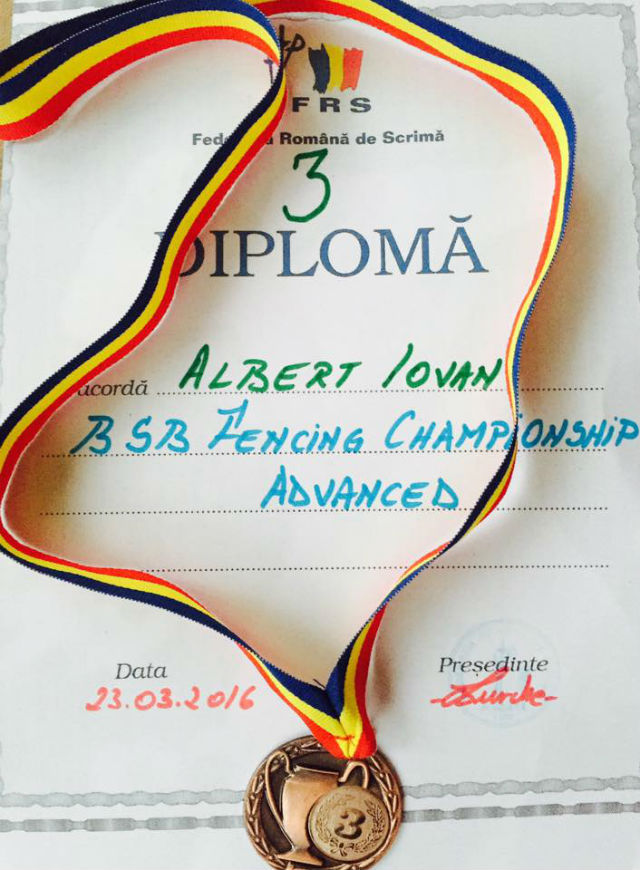 FRS
Federația Română de Scrimă
3
DIPLOMĂ
acordă ALBERT IOVAN
BSB FENCING CHAMPIONSHIP
ADVANCED
Data
23.03.2016
Președinte
3